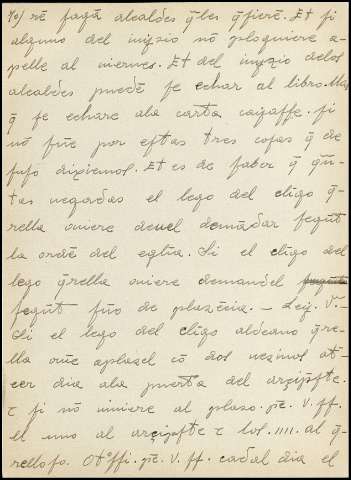 ro) rē fagā alcaldes q̄les q̄sierē. Et si
alguno del iuyzio nō ploguiere a-
pelle al uiernes. Et del iuyzio delos
alcaldes puedē se echar al libro. Mas
q̄ se echare ala carta caya sse. si
nō fue por estas tres cosas q̄ de
suso dixiemos. Et es de saber q̄ q̄n-
tas uegadas el lego del cl̄igo q̄-
rella ouiere deuel demādar segūt
la ordē del egl̄ia. Si el cl̄igo del
lego q̄rella ouiere demandel
segūt fūo de plazēcia. – Ley. V.–
Si el lego del cl̄igo aldeano q̄re-
lla oūe aplazel cō dos uezinos at-
cer dia ala puerta del arcip̄ste.
τ si nō uiniere al plazo. pē. V. ss.
el uno al arcip̄ste τ los. IIII. al q̄-
relloso. Otᵒssi. pē. V. ss. cadal dia el